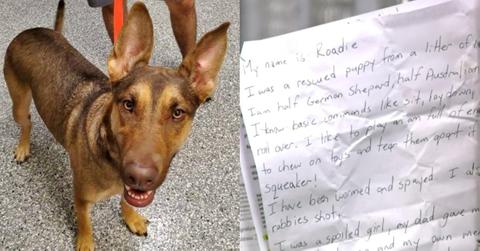 My name is Roadie
I was a rescued puppy from a litter of
I am half German Sheperd, half Australian
I know basic commands like sit, lay down,
roll over. I like to play an am full of
to chew on toys and tear them apart
squeaker!
I have been wormed and spayed. I
rabbies shot.
I was a spoiled girl, my dad gave
and my own